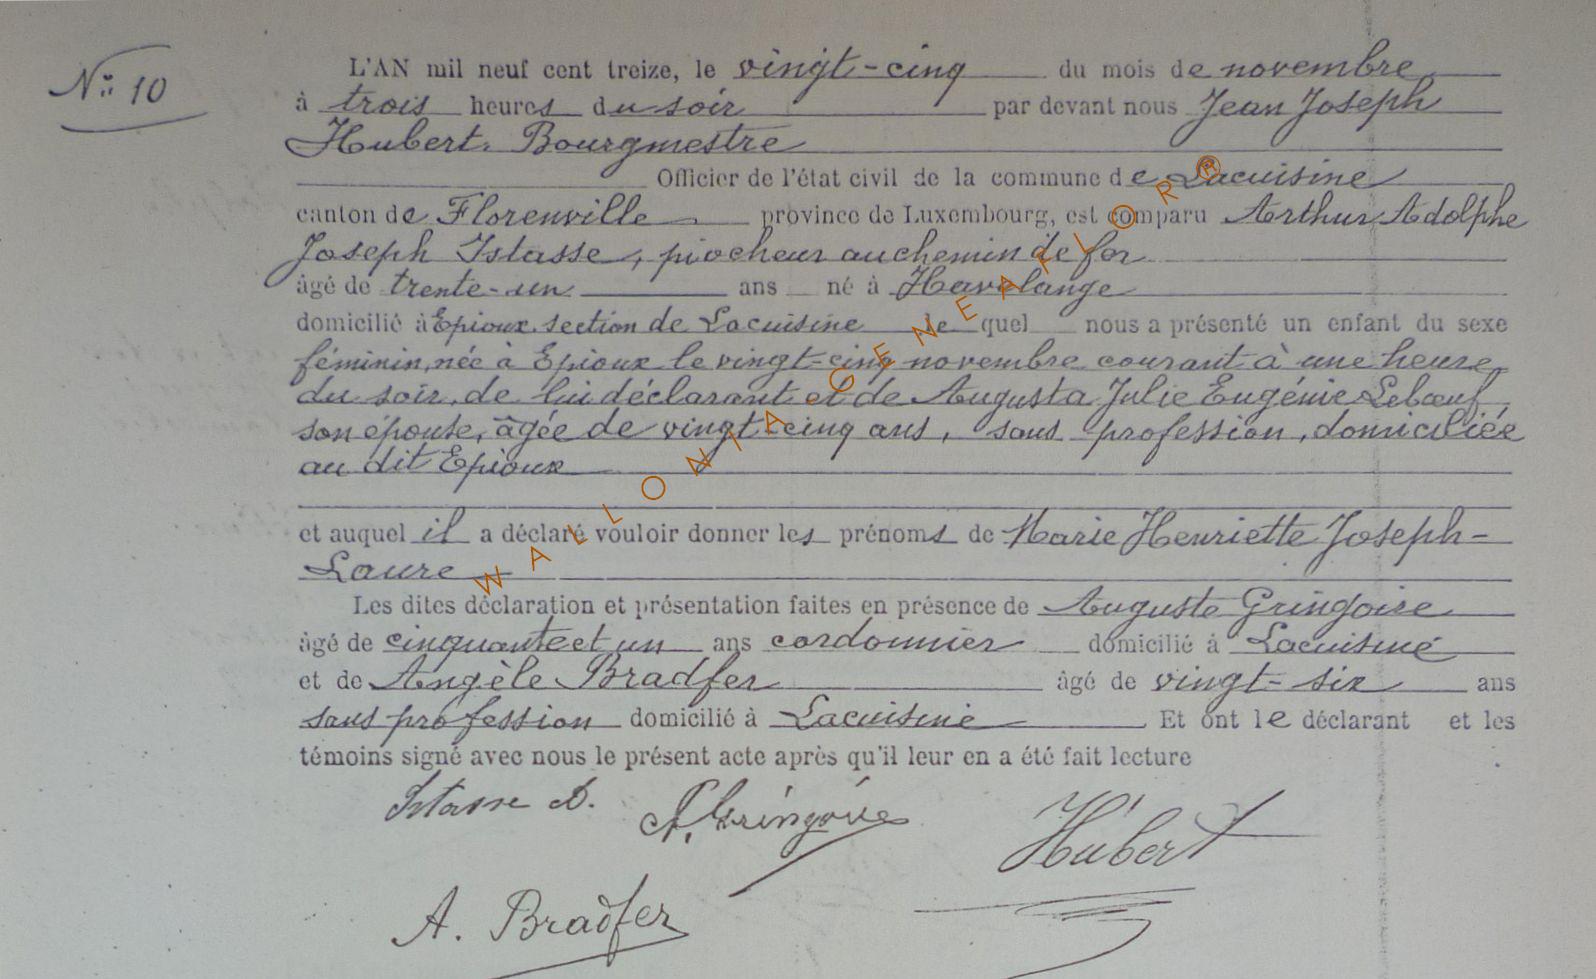 N° 10
L'AN mil neuf cent treize, le vingt-cinq du mois de novembre
à trois heures du soir par devant nous Jean Joseph
Hubert. Bourgmestre
Officier de l'état civil de la commune de Lacuisine
canton de Florenville province de Luxembourg, est comparu Arthur, Adolphe
Joseph Istasse, piocheur au chemin de fer
âgé de trente-un ans né à Havelange
domicilié à Epioux. section de Lacuisine le quel nous a présenté un enfant du sexe
féminin, née à Epioux le vingt-cinq novembre courant à une heure
du soir, de lui déclarant et de Augusta Julie Eugénie Lebœuf
son épouse, âgée de vingt-cinq ans, sans profession, domiciliée
au dit Epioux
et auquel il a déclaré vouloir donner les prénoms de Marie Henriette Joseph-
Laure
Les dites déclaration et présentation faites en présence de Auguste Gringoire
âgé de cinquante et un ans cordonnier domicilié à Lacuisine
et de Angèle Bradfer âgé de vingt-six ans
sans profession domicilié à Lacuisine Et ont le déclarant et les
témoins signé avec nous le présent acte après qu'il leur en a été fait lecture
Istasse A.
A. Gringoire
Hubert
A. Bradfer
WALLONIA-GENEAFLOR®